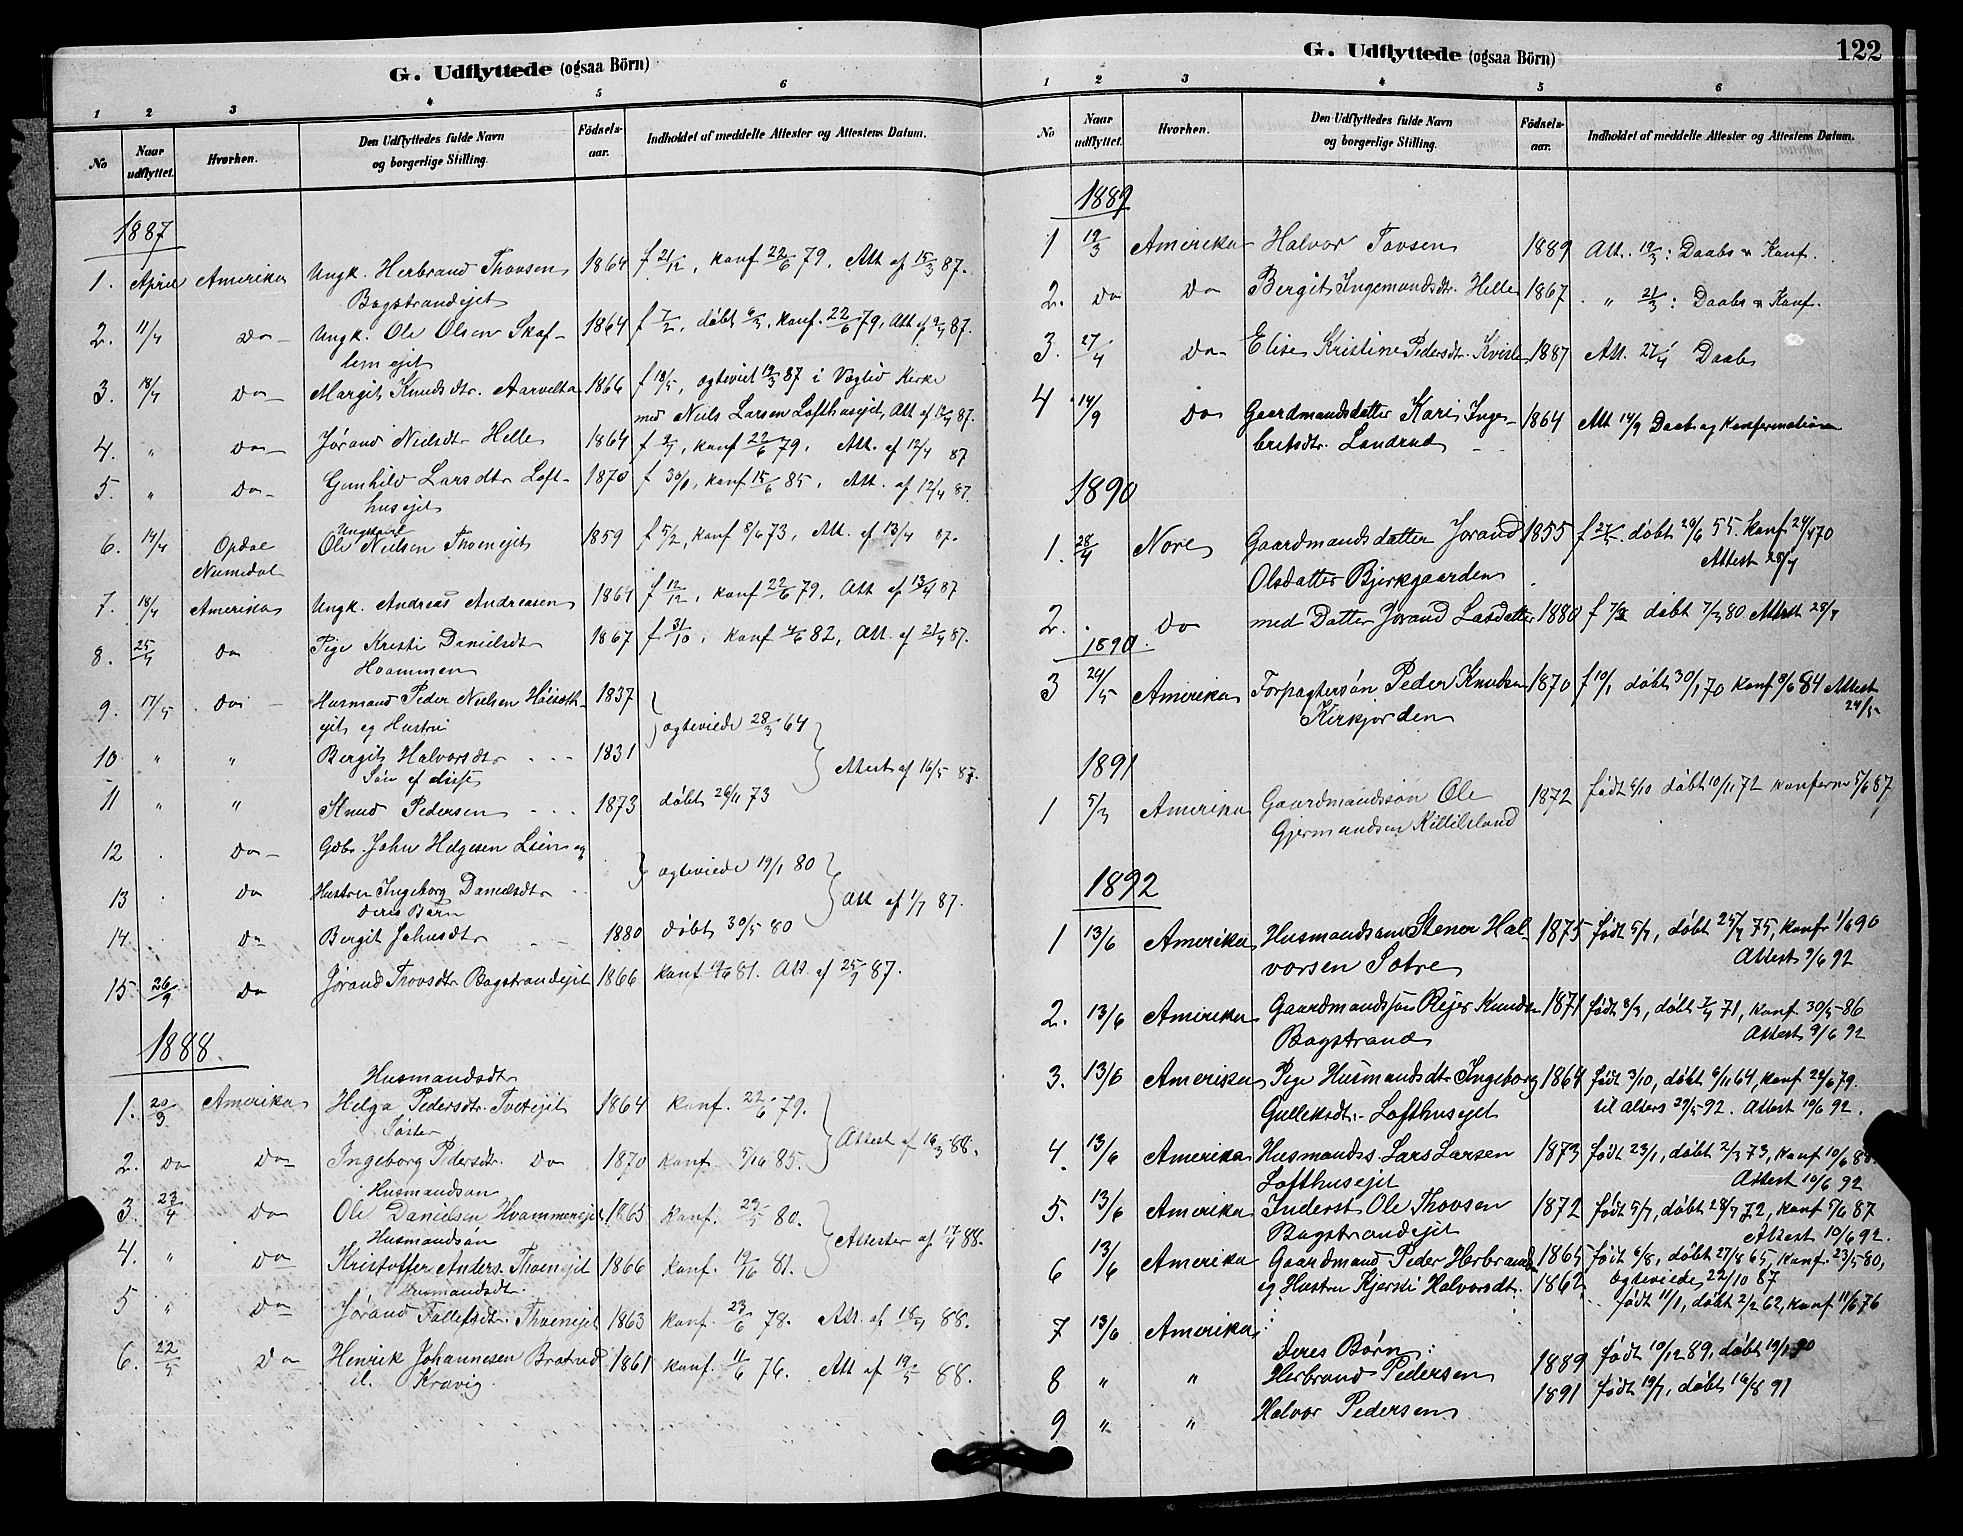 G. Udflyttede (ogsaa Börn)
1 2 3 4 5 6
No Naar udflyttet. Hvorhen. Den Udflyttedes fulde Navn og borgerlige Stilling. Födsels-aar. Indholdet af meddelte Attester og Attestens Datum.
1887
1. April Amerika Ungk. Herbrand Thovsen 1864 f 21/12, konf 22/6 79, Att af 15/3 87.
Bagstrandejet
2. 11/4 Do Ungk. Ole Olsen Skaf- 1864 f 7/2, döbt 6/3, konf. 22/6 79, Att af 9/4 87.
lemejet
3. 18/4 Do Margit Knudsdtr. Aarvelta 1866 f 18/5, egteviet 19/3 87 i Veglid Kirke
med Niels Larsen Lofthusejet, Att af 12/4 87.
4. " Do Jórand Nielsdtr Helle 1864 f 2/1, konf 22/6 79, Att. af 12/4 87
5. " Do Gunhild Larsdtr Loft- 1870 f 30/1, konf 15/6 85, Att. af 12/4 87.
husejet
Ungkarl
6. 14/4 Opdal Ole Nielsen Thoenejet 1859 f 5/2, konf 8/6 73, Att. af 13/4 87.
Numedal
7. 18/4 Amerika Ungk. Andreas Andreasen 1864 f 12/12, konf 22/6 79, Att af 13/4 87
8. 25/4 Do Pige Kristi Danielsdt 1867 f 31/10, konf 4/6 82, Att. af 21/4 87.
Hvammen
9. 17/5 Do Husmand Peder Nielsen Höiseth- 1837
ejet og Hustru egteviede 28/3 64
10. " " Bergit Halvorsdtr 1831 Attest af 16/5 87.
Sön af disse
11 " " Knud Pedersen 1873 döbt 26/11 73
12 . Do Gdbr. John Helgesen Lien og
egteviede 19/1 80
13 . Do Hustru Ingeborg Danielsdtr Att af 1/7 87.
deres Barn
14. . Do Bergit Johnsdtr 1880 döbt 30/5 80
15 26/9 Do Jörand Thovsdtr Bagstrandejet 1866 konf 81. Att. af 25/9 87.
1888.
Husmandsdtr
1. 20/3 Amerika Helga Pedersdtr. Tvetejet 1864 konf. 22/6 79.
Söster Attest af 16/3 88.
2. Do Do Ingeborg Pedersdtr. Do 1870 konf. 85.
Husmandsön
3. 23/4 Do Ole Danielsen Hvammenejet 1865 konf. 23/5 80.
Husmandsön Attester af 17/4 88.
4. " Do Kristoffer Anders. Thoenejet 1866 konf. 19/6 81.
Husmandsdt.
5 " Do Jörand Tollefsdtr. Thoenejet 1863 konf. 23/6 78. Att. af 18/4 88.
6. 22/5 Do Henrik Johannesen Bratrud 1861 konf. 11/6 76. Att af 19/5 88.
il. Kravig
G. Udflyttede (ogsaa Börn) 122
1 2 3 4 5 6
No Naar udflyttet. Hvorhen. Den Udflyttedes fulde Navn og borgerlige Stilling. Födsels-aar. Indholdet af meddelte Attester og Attestens Datum.
1889
1 19/3 Amerika Halvor Tovsen 1889 Att. 19/3: Daabs & Konf.
2. Do Do Bergit Ingemundsdtr. Helle 1867 " 21/3: Daabs & Konf.
3. 27/4 Do Elise Kristine Pedersdtr. Kvisle 1887 Att. 27/4 Daab
4 14/9 Do Gaardmandsdatter Kari Inge- 1864 Att 14/9 Daab og Konfirmation
britsdtr. Landrud
1890
1. 28/4 Nore Gaardmandsdatter Jorand 1855 f 27/5. döbt 29/6 55 konf 24/4 70
Olsdatter Bjerkgaarden Attest 28/4
2. . Do med Datter Jorand Lasdatter 1880 f döbt 7/3 80 Attest 28/4
1890.
3 24/5 Amerika Forpagtersön Peder Knudsen 1870 f 10/1 döbt 30/1 70 konf 8/6 84 Attest
Kirkjorden 24/5
1891
1 5/3 Amerika Gaardmandssön Ole 1872 född 6/10 döbt 10/11 72 konferm 5/6 87
Gjermundsen Killilsland
1892
1 13/6 Amerika Husmandssøn Stener Hal- 1875 född 5/7, döbt 25/7 75, konfr 1/6 90
vorsen Sotre Attest 3/6 92
2. 13/6 Amerika Gaardmandssøn Rejer Knudsn 1871 född 8/3, döbt 2/4 71, konf 30/5-86
Bagstrand Attest 9/6 92
3. 13/6 Amerika Pige Husmandsdtr Ingeborg 1864 född 3/10, döbt 6/11 64, konf 24/6 79.
Gulleksdt:- Lofthusejet til alters 29/5-92. Attest 10/6 92.
4. 13/6 Amerika Husmandss. Lars Larsen 1873 född 23/1, döbt 2/3 73, konf 10/6 88.
Lofthusejet Attest 10/6 92
5. 13/6 Amerika Inderst Ole Thovsen 1872 född 5/7, döbt 28/7 72, konf 5/6 87
Bagstrandejet Attest 10/6 92.
6 13/6 Amerika Gaardmand Peder Herbrands 1865 född 6/8, döbt 27/8 65, konf. 23/5-80,
og Hustru Kjersti Halvorsdt. 1862 egteviede 22/10 87
född 11/1, döbt 2/2 62, konf 11/6 76
7 13/6 Amerika
Deres Börn:
8 " " Herbrand Pedersen 1889 född 10/12 89, döbt 19/1 90
9 " " Halvor Pedersen 1891 född 19/7, döbt 16/8 91